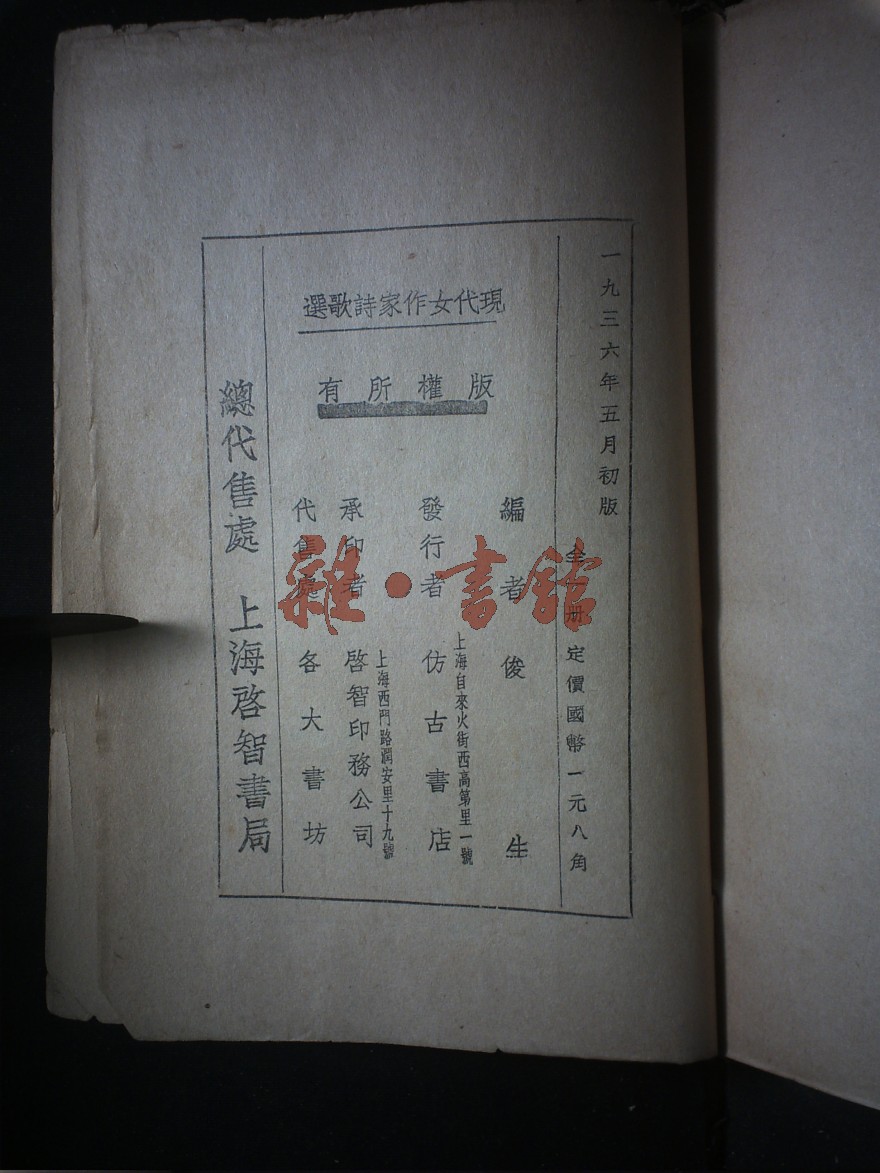 一九三六年五月初版
全一册 定價國幣一元八角
現代女作家詩歌選
版權所有
編者 俊生
上海自來火街西高第里一號
發行者 仿古書店
上海西門路潤安里十九號
承印者 啓智印務公司
代售處 各大書坊
總代售處 上海啓智書局
雜·書館